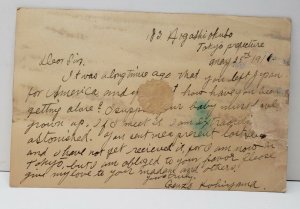 183 Higashi okubo
Tokyo prefecture
May 25th 191
Dear Sir,
It was a long time ago that you left Japan
for America and how have you been
getting alure? I suppose your baby
grown up. If I meet it I am extremely
astonished. You sent me present before
and I have not recieved it for I am now in
Tokyo, but am obliged to your favor. Please
give my love to your madam and others.
Yours truly,
Genzo